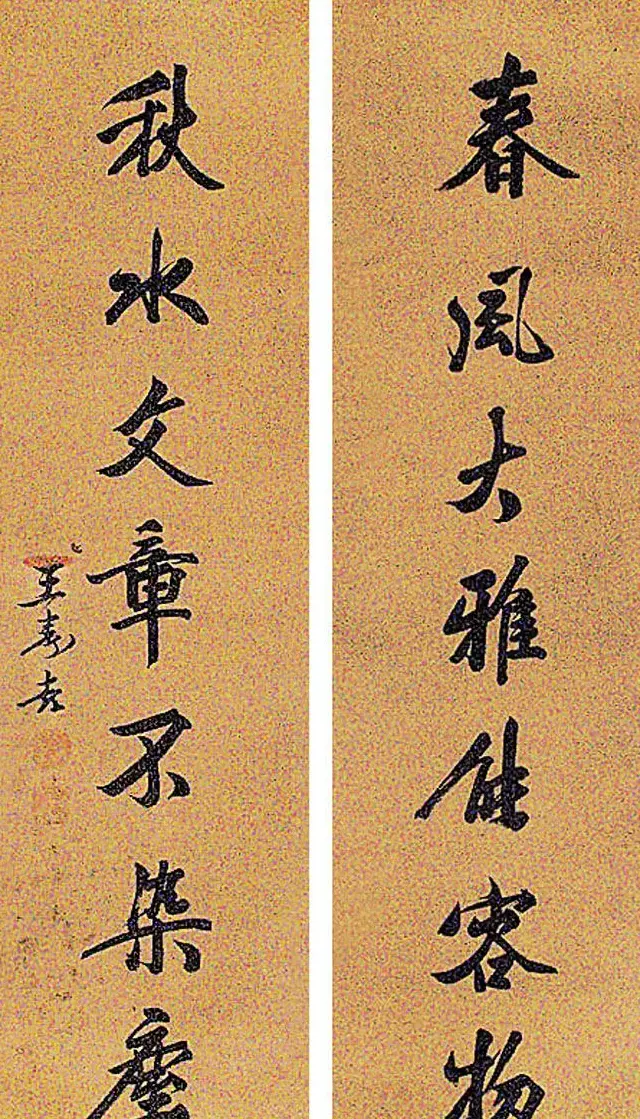 春风大雅能容物
秋水文章不染塵
王壽彭